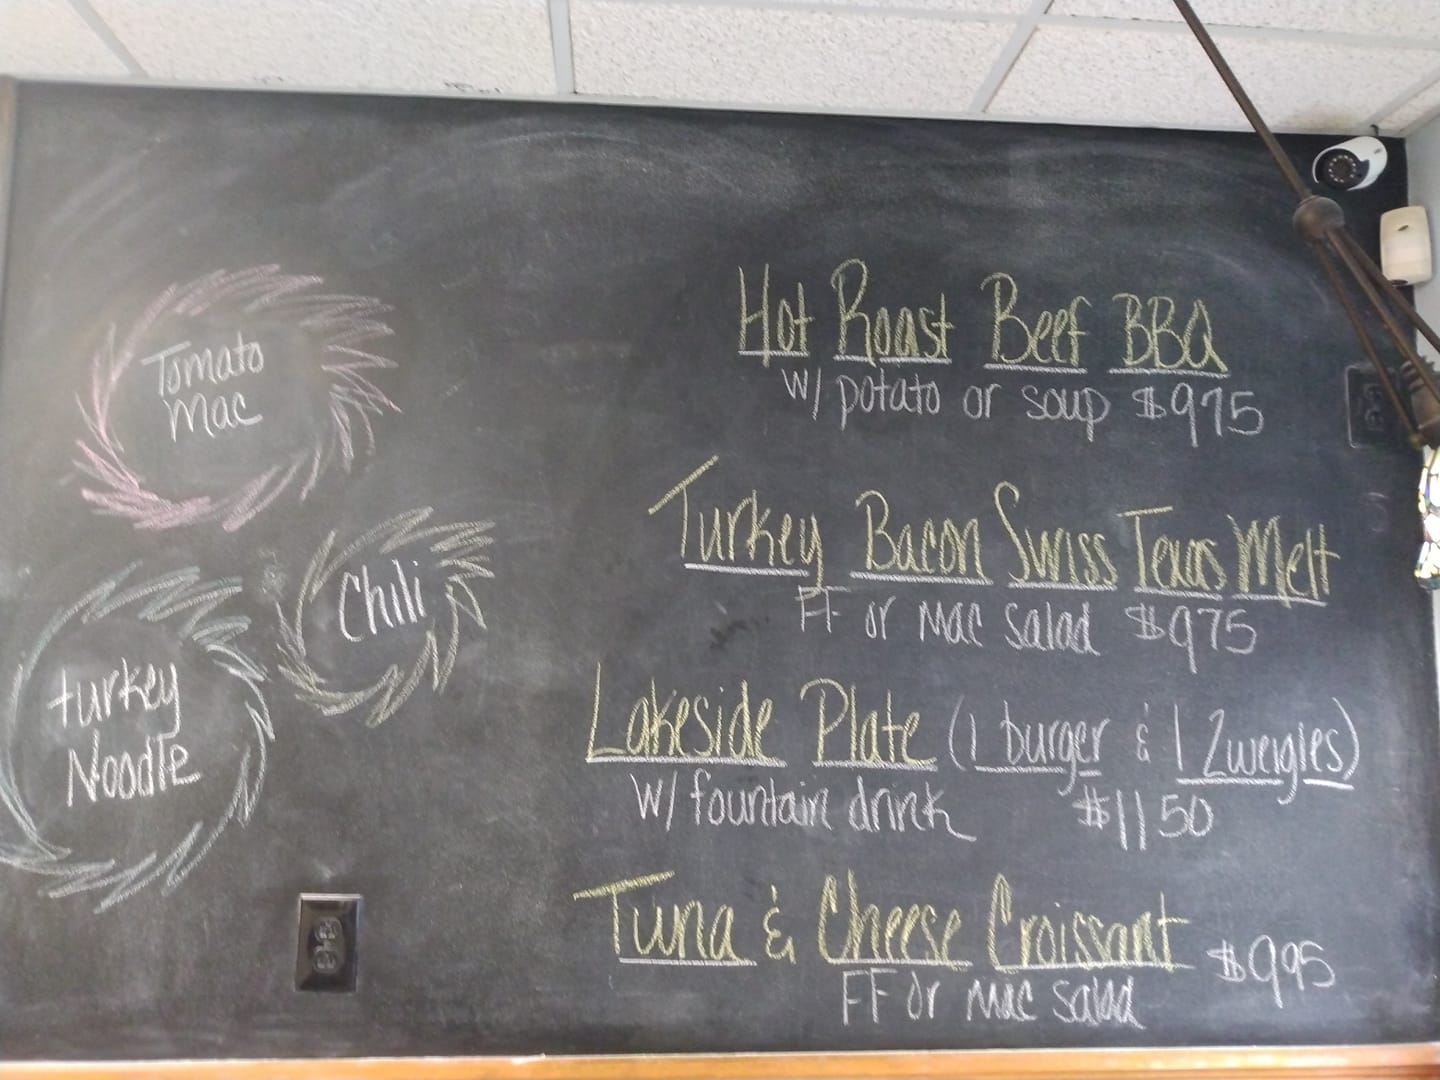 Tomato
Mac
Chili
turkey
Noodle
Hot Roast Beef BBQ
w/ potato or soup $975
Turkey Bacon Swiss Texas Melt
FF or Mac Salad $975
Lakeside Plate (1 burger & 1 Zweigles)
w/ fountain drink $1150
Tuna & Cheese Croissant $995
FF or Mac Salad